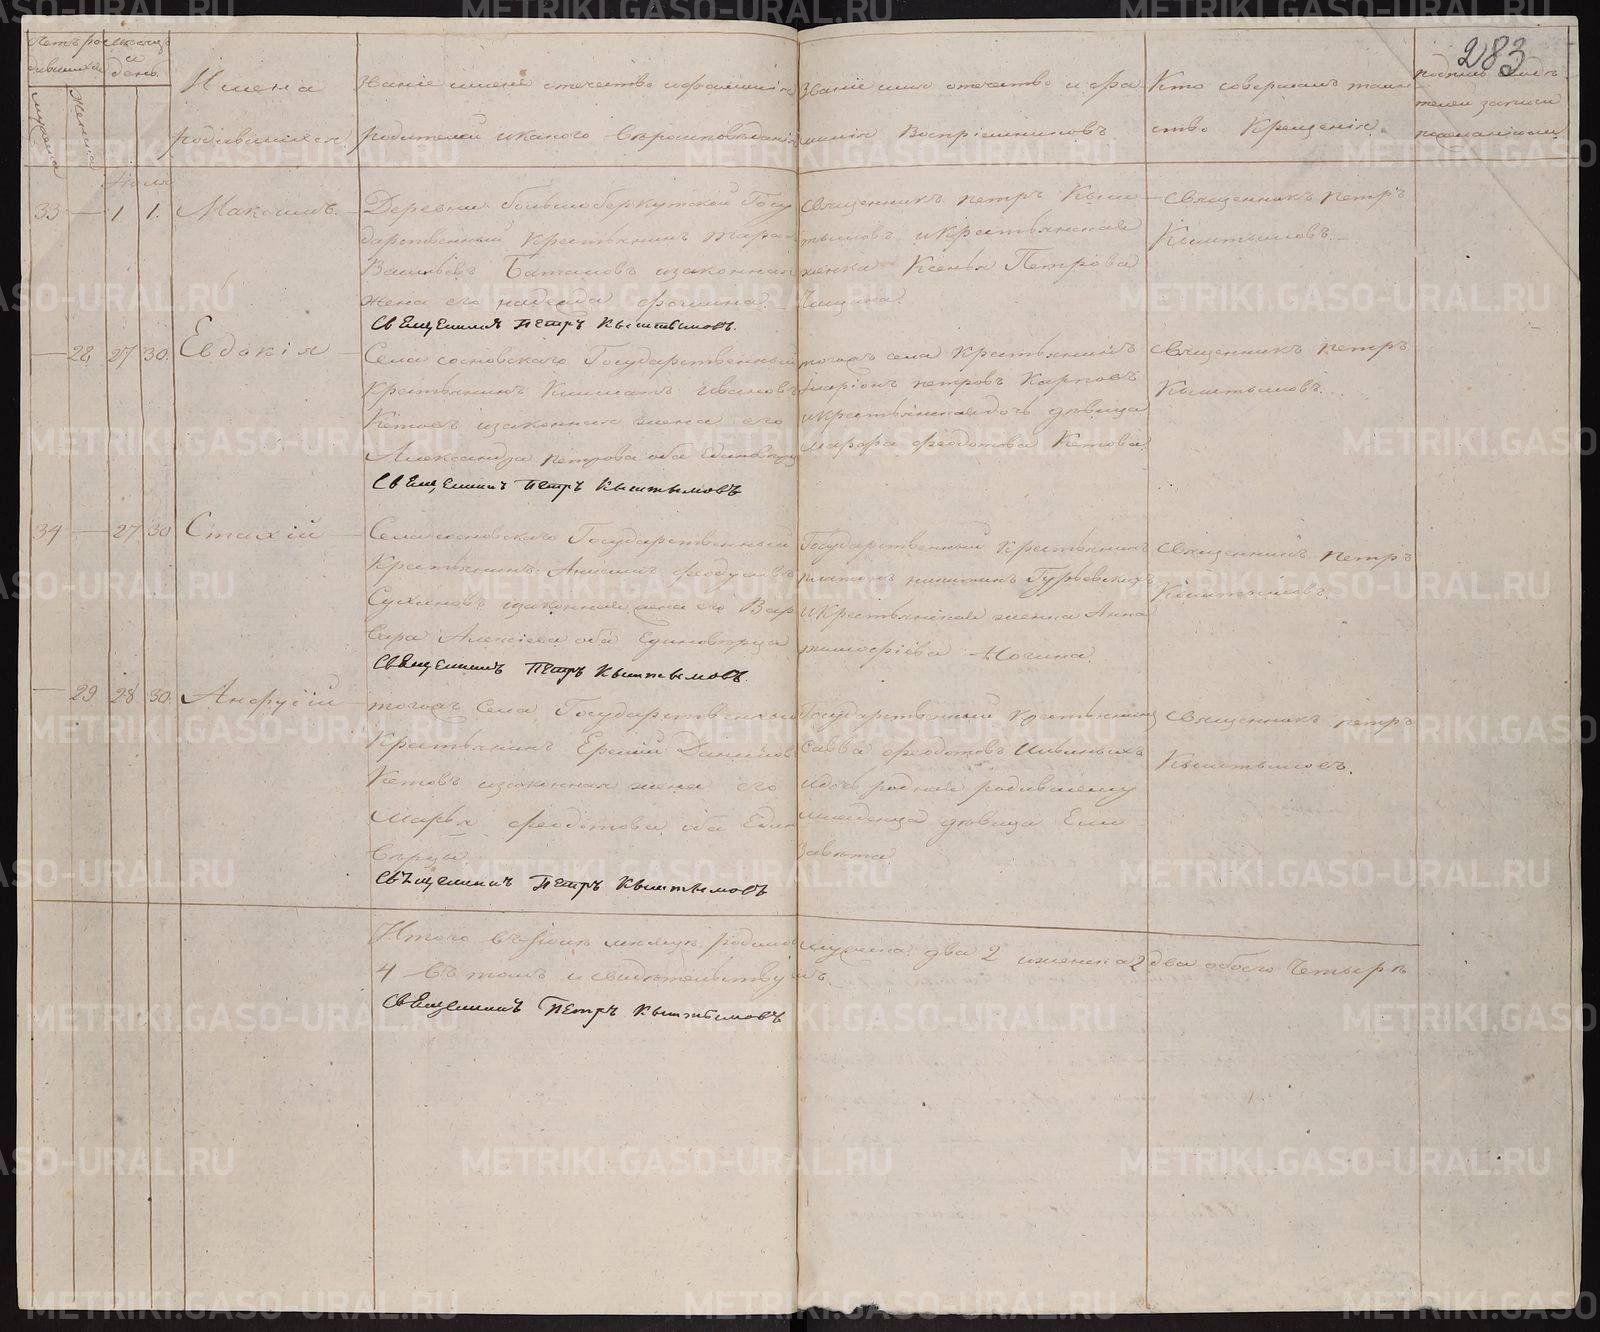 283
Счетъ родившихся
мужеска
женска
Месяцъ и день
Имена родившихся.
Званіе имена отечество и фамилія
родителей и какого вероисповеданія
Званіе имя отечество и фа
милія Воспріемниковъ
Кто совершалъ таин
ство Крещенія
тателей записи
Іюль
33 — 1 1. Максимъ.
Деревни большеберкутской Госу
дарственный Крестьянинъ
Батановъ и законная
жена его надежда фомина.
Священникъ Петръ Кыштымовъ.
Священникъ петръ Кыш
тымовъ и Крестьянская
женка Ксенья Петрова
Священникъ Петръ
Кыштымовъ.
— 28 27 30. Евдокія
Села сосновскаго Государственный
Крестьянинъ Климатъ Ивановъ
Кетовъ и законная жена его
Александра петрова оба единоверцы
Священникъ Петръ Кыштымовъ
тогожъ села Крестьянинъ
Иларіонъ петровъ Карповъ
и Крестьянская дочь девица
марфа феодотова Кетова
Священникъ петръ
Кыштымовъ.
34 — 27 30 Стахій
Села сосновскаго Государственный
Крестьянинъ Анисимъ
Сухановъ и законная жена его Вар
вара Алексіева оба Единоверца
Священникъ Петръ Кыштымовъ.
Государственный Крестьянинъ
платонъ никитинъ Гурьевскихъ
и Крестьянская женка Анна
тимофіева
Священникъ петръ
Кыштымовъ.
— 29 28 30.
тогожъ Села Государственный
Крестьянинъ Ермій Даниловъ
Кетовъ и законная жена его
Марья феодотова оба Едино
верцы.
Священникъ Петръ Кыштымовъ
Государственный Крестьянинъ
савва феодотовъ
и дочь родная родившему
младенца девица Ели
завета
Священникъ петръ
Кыштымовъ.
Итого въ Іюле месяце родилось мужеска два 2 и женска 2 два обоего Четыре
4 въ томъ и свидетельствуемъ.
Священникъ Петръ Кыштымовъ
METRIKI.GASO-URAL.RU